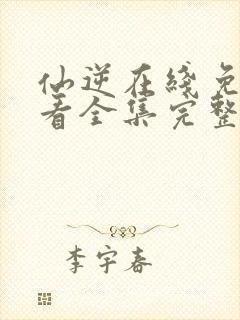 仙逆在线免
看全集完整
李宇春